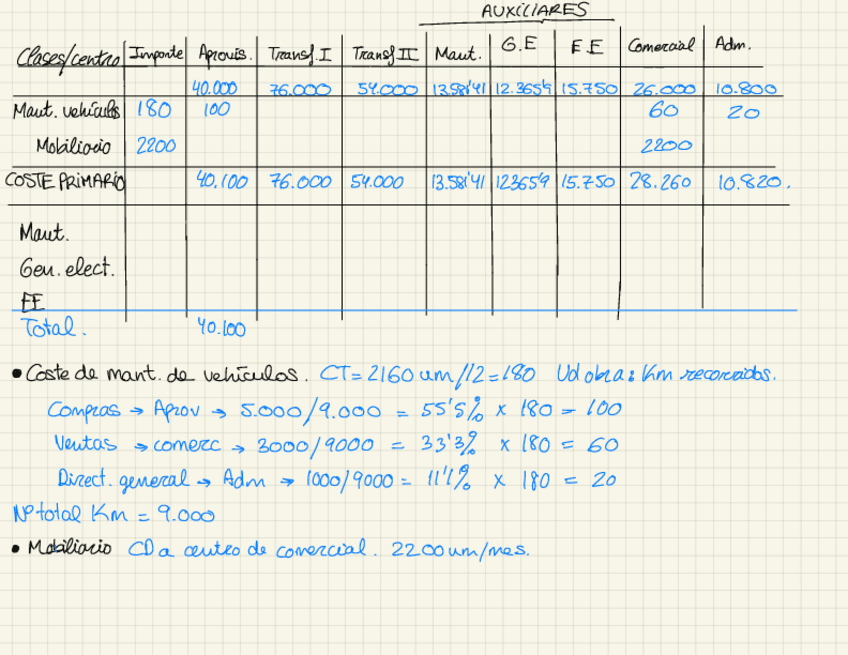 AUXILIARES
Clases/centro Importe Aprovis. Transf. I Transf II Maut. G.E E.E Comercial Adm.
40.000 76.000 54.000 13.581'41 12.365'9 15.750 26.000 10.800
Maut. vehículos 180 100 60 20
Mobiliario 2200 2200
COSTE PRIMARIO 40.100 76.000 54.000 13.581'41 12365'9 15.750 28.260 10.820.
Maut.
Gen. elect.
EE
Total. 40.100
• Coste de mant. de vehículos. CT = 2160 um/12 = 180 Ud obra: Km recorridos.
Compras → Aprov → 5.000/9.000 = 55'5% x 180 = 100
Ventas → comerc → 3000/9000 = 33'3% x 180 = 60
Direct. general → Adm → 1000/9000 = 11'1% x 180 = 20
Nº total Km = 9.000
• Mobiliario CD a centro de comercial. 2200 um/mes.